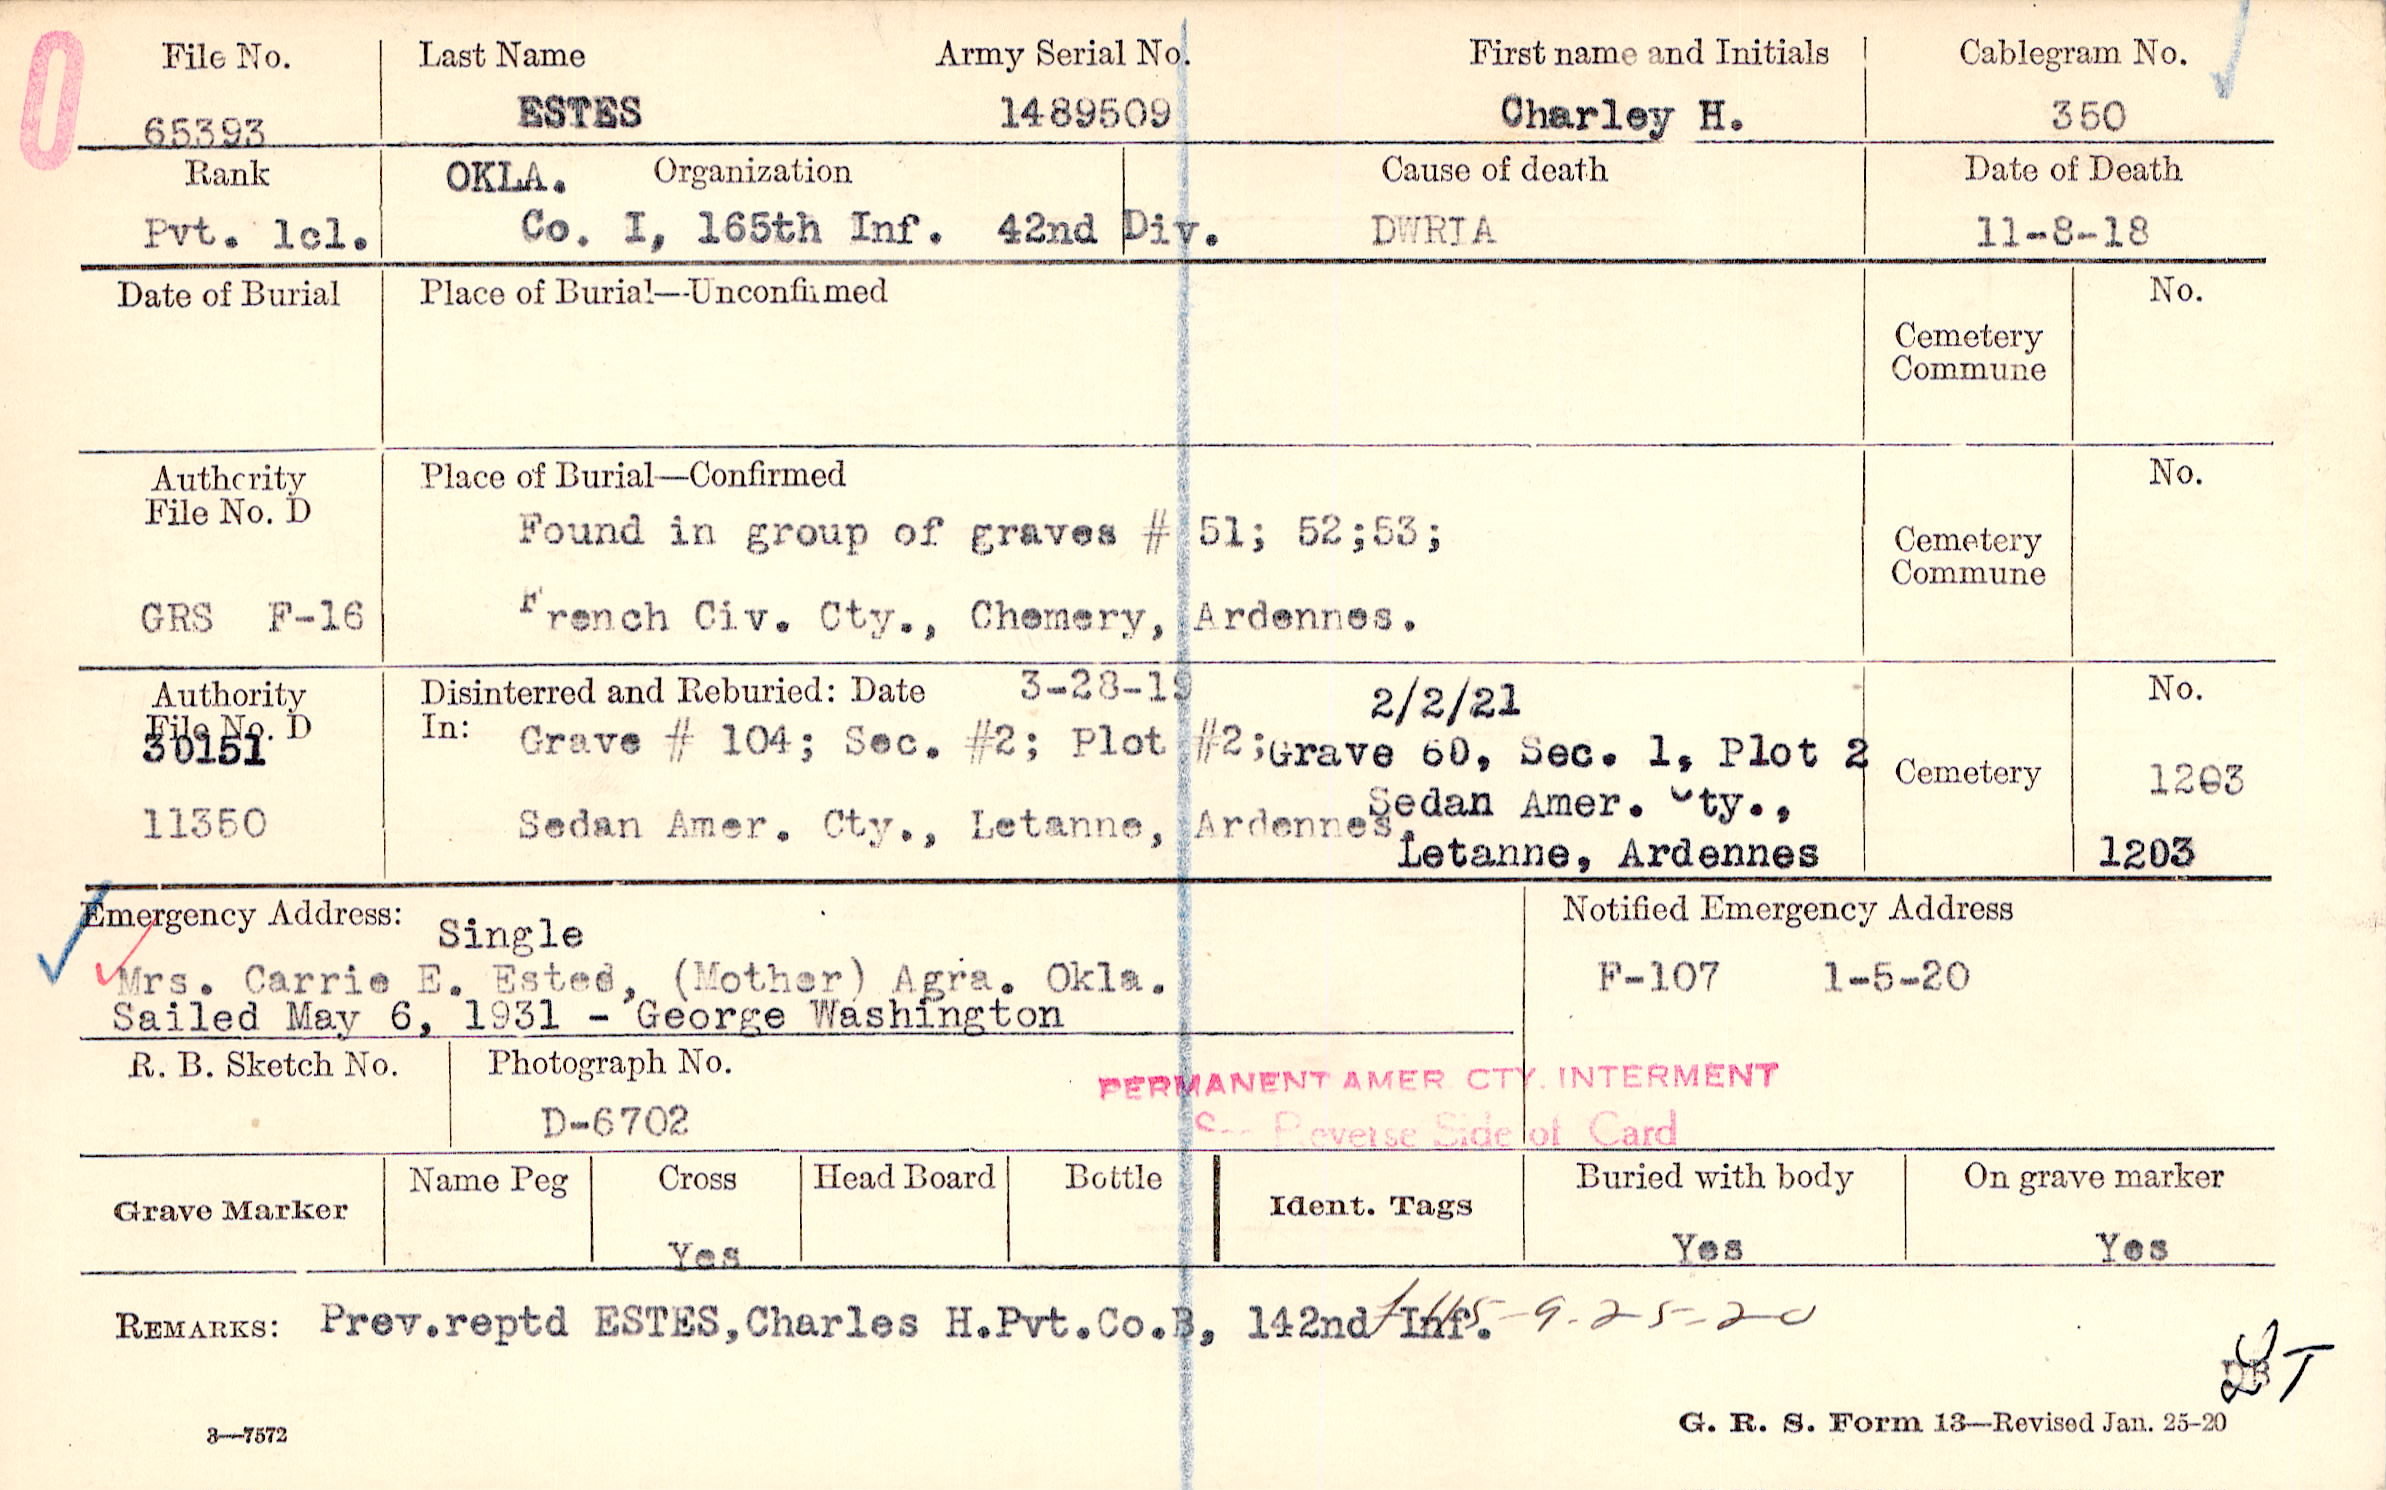 File No. Last Name Army Serial No. First name and Initials Cablegram No.
65393 ESTES 1489509 Charley H. 350
Rank OKLA. Organization Cause of death Date of Death
Pvt. 1cl. Co. I, 165th Inf. 42nd Div. DWRIA 11-8-18
Date of Burial Place of Burial—Unconfirmed No.
Cemetery
Commune
Authority Place of Burial—Confirmed No.
File No. D
Found in group of graves # 51; 52;53;
Cemetery
Commune
GRS F-16 French Civ. Cty., Chemery, Ardennes.
Authority Disinterred and Reburied: Date 3-28-19 2/2/21 No.
File No. D In: Grave # 104; Sec. #2; Plot #2; Grave 60, Sec. 1, Plot 2
30151 Cemetery 1203
11350 Sedan Amer. Cty., Letanne, Ardennes. Sedan Amer. Cty.,
Letanne, Ardennes 1203
Emergency Address: Notified Emergency Address
Single
Mrs. Carrie E. Estes, (Mother) Agra. Okla. F-107 1-5-20
Sailed May 6, 1931 - George Washington
R. B. Sketch No. Photograph No.
PERMANENT AMER. CTY. INTERMENT
D-6702 See Reverse Side of Card
Grave Marker Name Peg Cross Head Board Bottle Ident. Tags Buried with body On grave marker
Yes Yes Yes
REMARKS: Prev.reptd ESTES,Charles H.Pvt.Co.B, 142nd Inf. 9-25-20
3—7572 G. R. S. Form 13—Revised Jan. 25-20